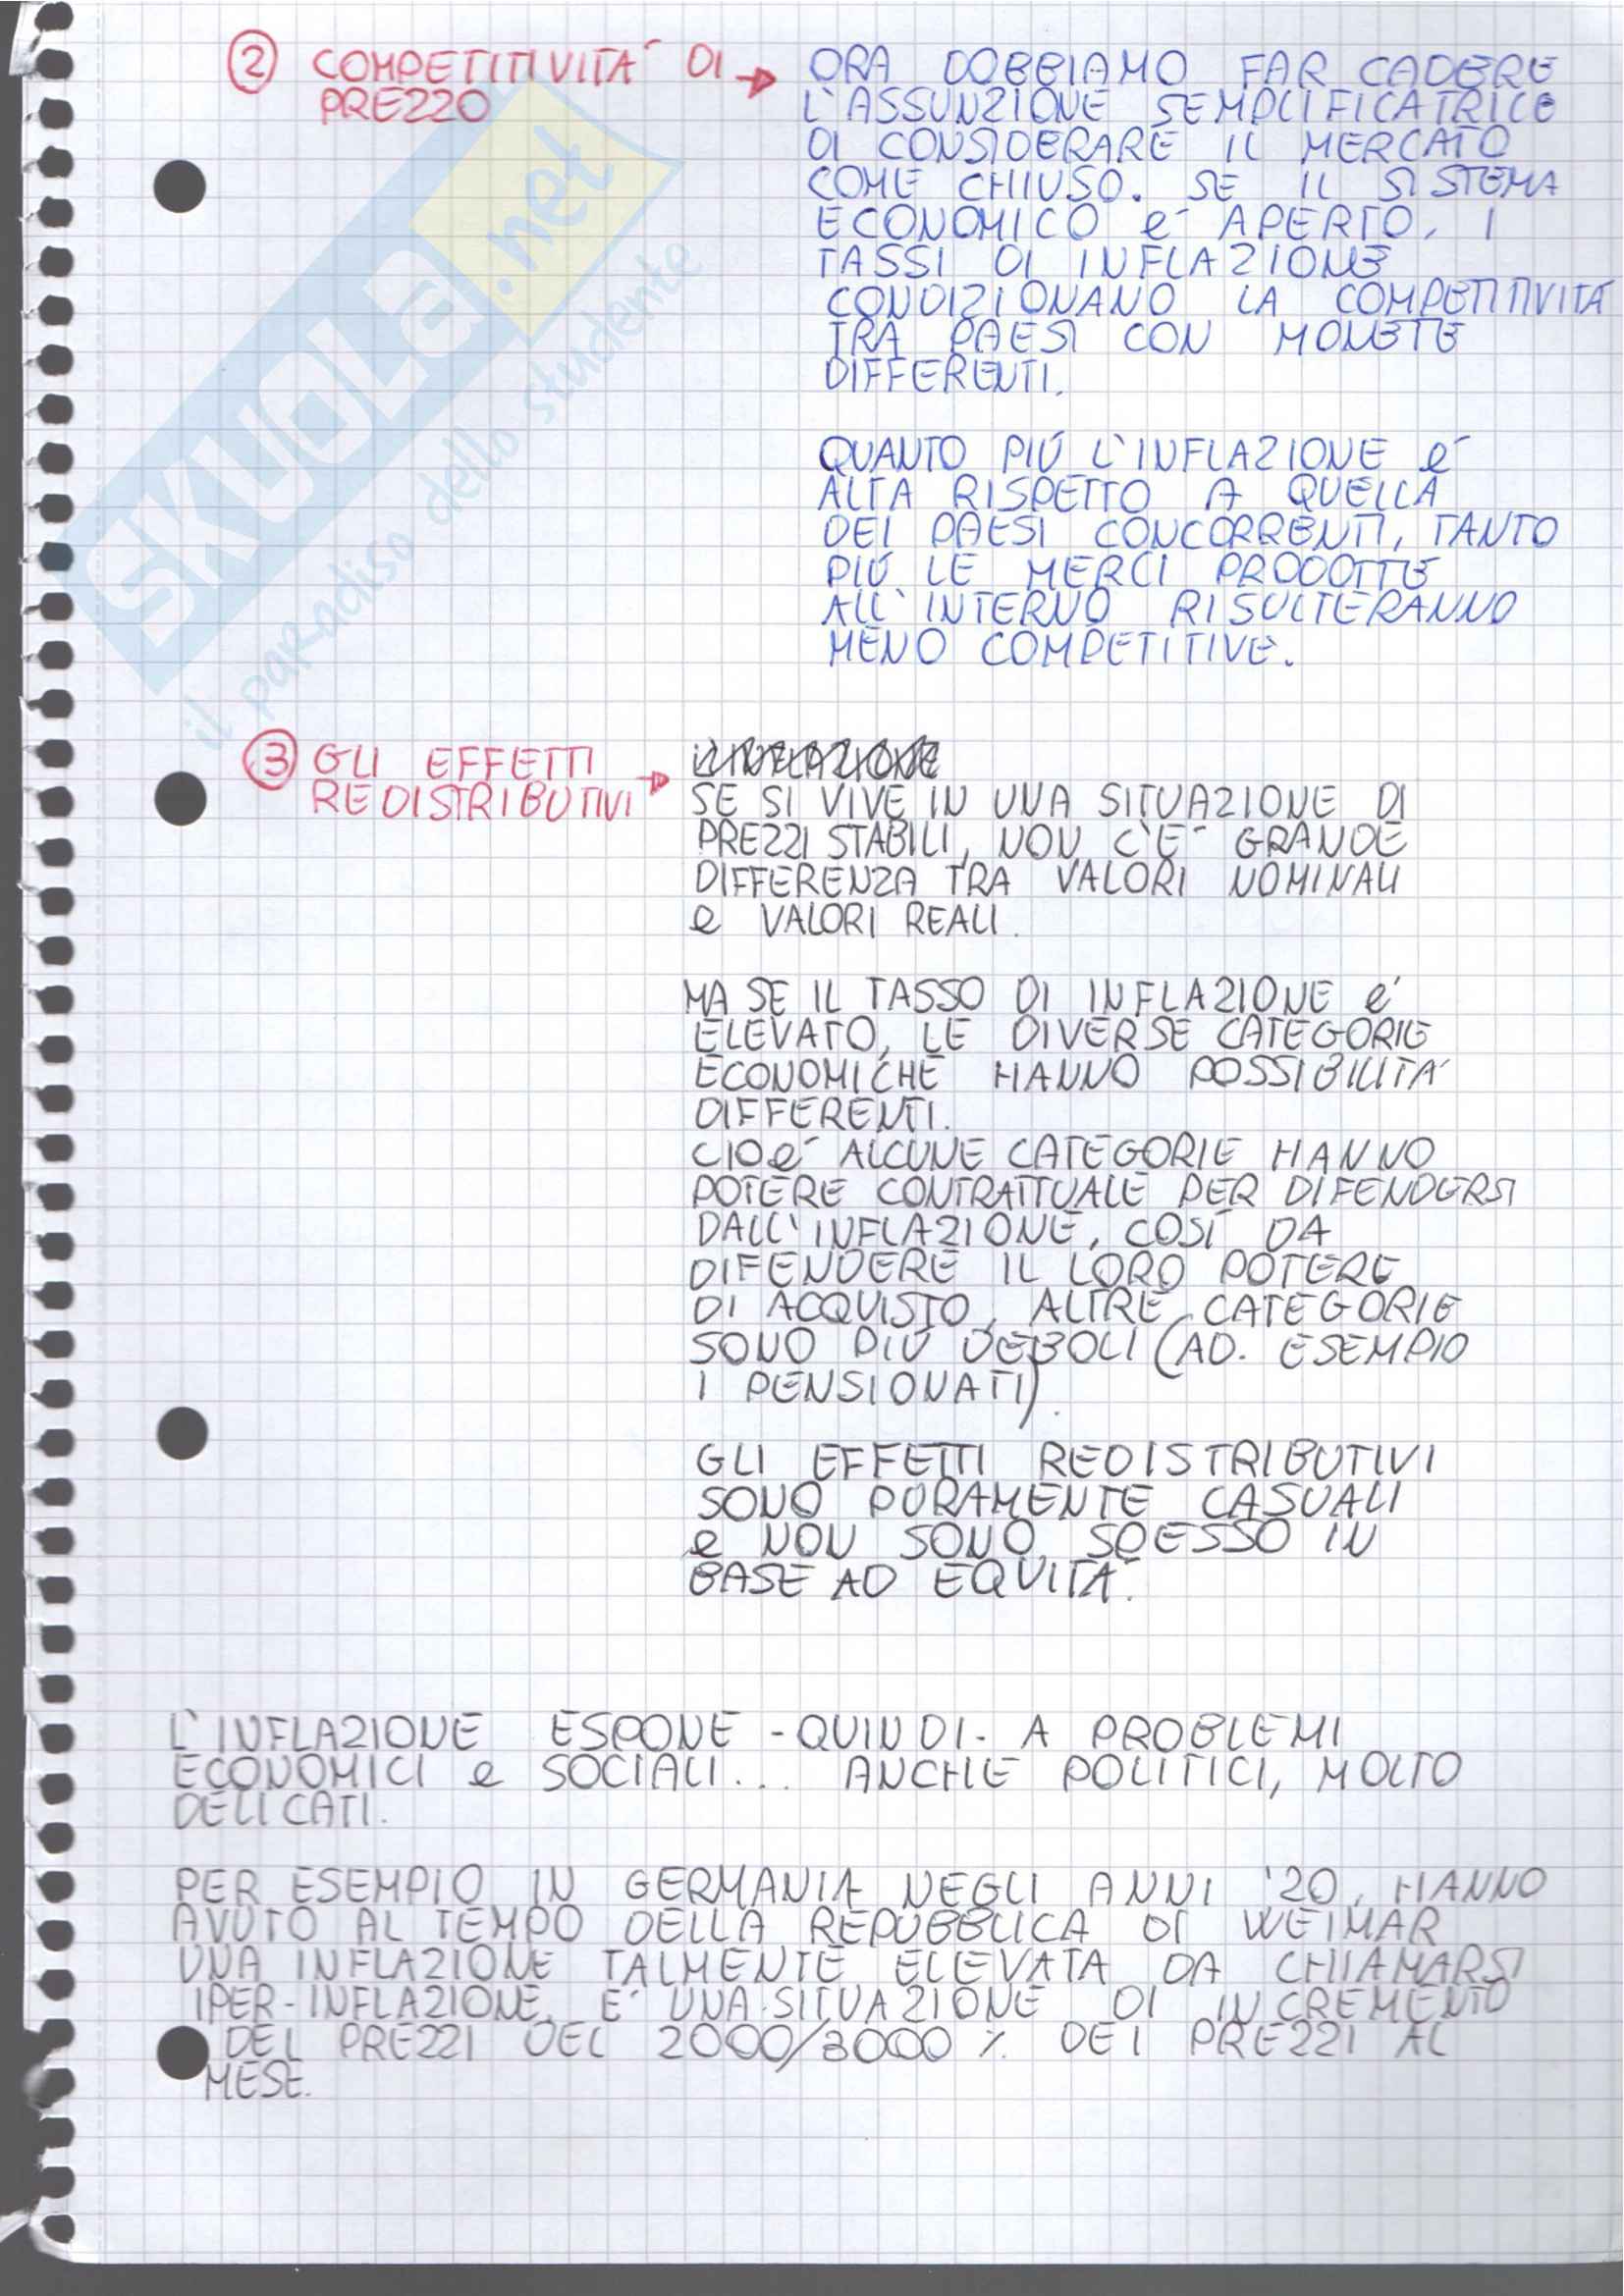 ② COMPETITIVITA' DI → ORA DOBBIAMO FAR CADERE
PREZZO L'ASSUNZIONE SEMPLIFICATRICE
DI CONSIDERARE IL MERCATO
COME CHIUSO. SE IL SISTEMA
ECONOMICO é APERTO, I
TASSI DI INFLAZIONE
CONDIZIONANO LA COMPETITIVITÀ
TRA PAESI CON MONETE
DIFFERENTI.
QUANTO PIÚ L'INFLAZIONE é
ALTA RISPETTO A QUELLA
DEI PAESI CONCORRENTI, TANTO
PIÚ LE MERCI PRODOTTE
ALL'INTERNO RISULTERANNO
MENO COMPETITIVE.
③ GLI EFFETTI → L'INFLAZIONE
REDISTRIBUTIVI SE SI VIVE IN UNA SITUAZIONE DI
PREZZI STABILI, NON C'E' GRANDE
DIFFERENZA TRA VALORI NOMINALI
e VALORI REALI.
MA SE IL TASSO DI INFLAZIONE é
ELEVATO, LE DIVERSE CATEGORIE
ECONOMICHE HANNO POSSIBILITA'
DIFFERENTI.
CIOé ALCUNE CATEGORIE HANNO
POTERE CONTRATTUALE PER DIFENDERSI
DALL'INFLAZIONE, COSÍ DA
DIFENDERE IL LORO POTERE
DI ACQUISTO, ALTRE CATEGORIE
SONO PIÚ DEBOLI (AD. ESEMPIO
I PENSIONATI).
GLI EFFETTI REDISTRIBUTIVI
SONO PURAMENTE CASUALI
e NON SONO SPESSO IN
BASE AD EQUITA'.
L'INFLAZIONE ESPONE - QUINDI - A PROBLEMI
ECONOMICI e SOCIALI... ANCHE POLITICI, MOLTO
DELICATI.
PER ESEMPIO IN GERMANIA NEGLI ANNI '20, HANNO
AVUTO AL TEMPO DELLA REPUBBLICA DI WEIMAR
UNA INFLAZIONE TALMENTE ELEVATA DA CHIAMARSI
IPER-INFLAZIONE. E' UNA SITUAZIONE DI INCREMENTO
DEL PREZZI DEL 2000/3000 % DEI PREZZI AL
MESE.
SKUOLA.net
il paradiso dello studente